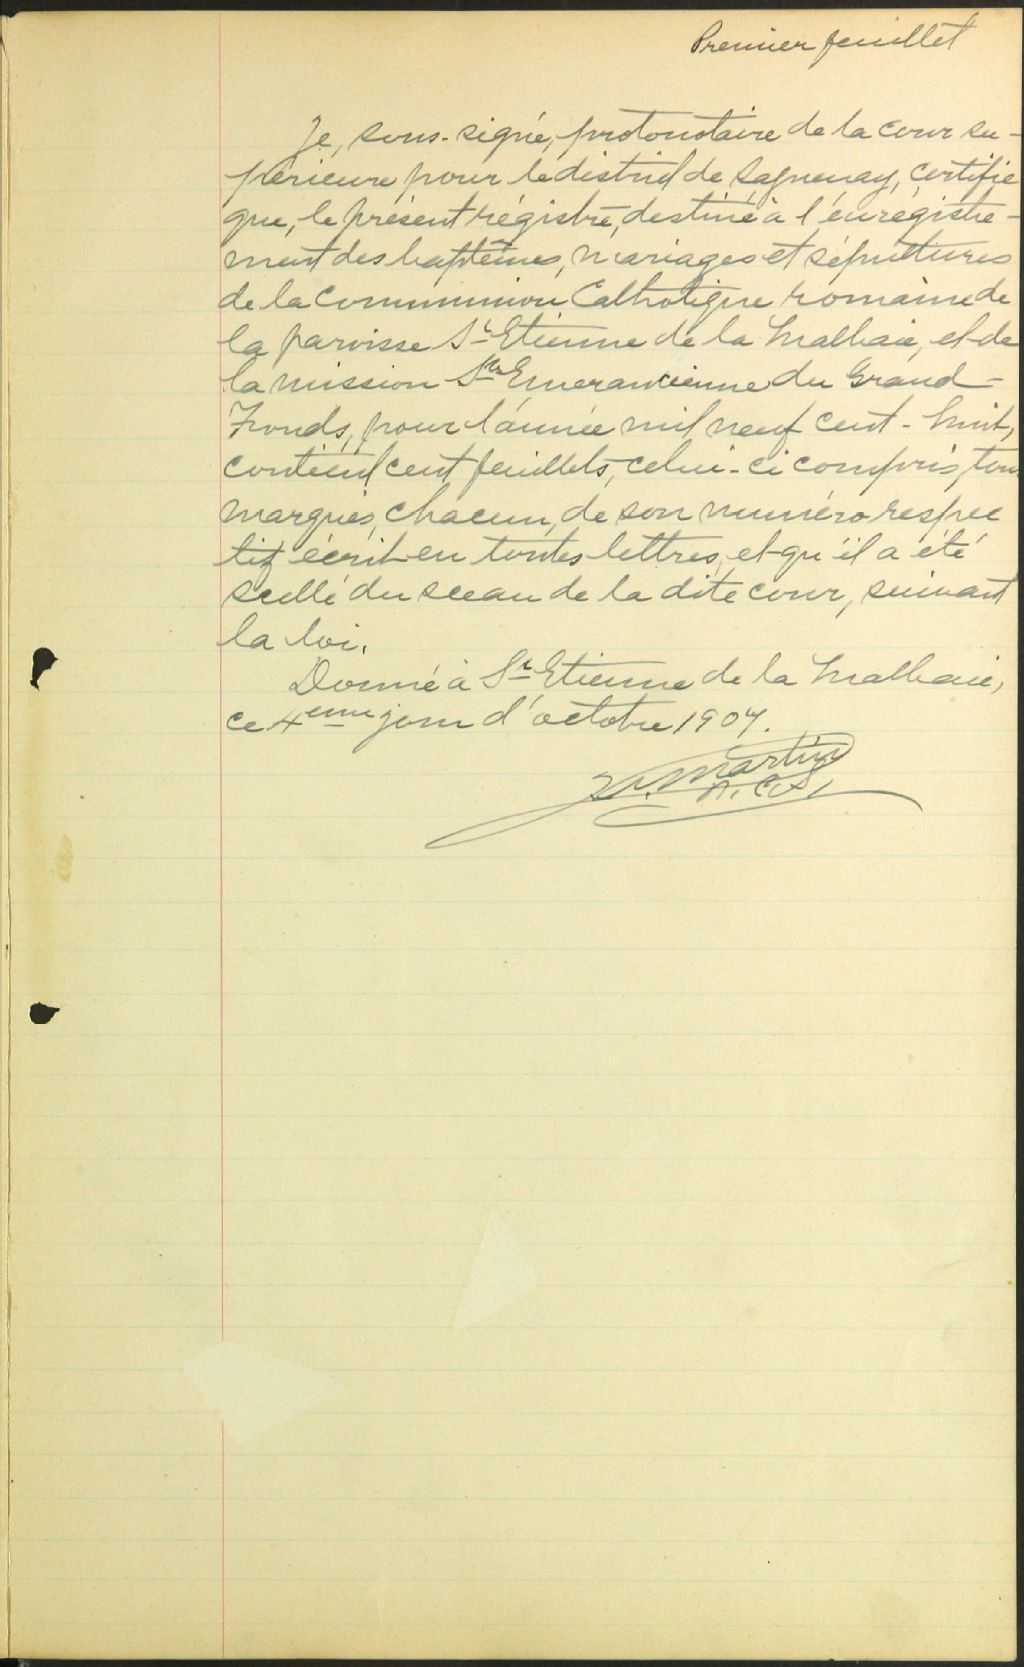 Premier feuillet
Je, sous-signé, protonotaire de la cour su-
périeure pour le district de Saguenay, certifie
que, le présent régistre, destiné à l'enrégistre-
ment des baptêmes, mariages et sépultures
de la Communion Catholique romaine de
la paroisse St Etienne de la Malbaie, et de
la mission Ste Emerancienne du Grand-
Fonds, pour l'année mil neuf cent-huit,
contient cent feuillets, celui-ci compris, tous
marqués, chacun, de son numéro respec
tif écrit en toutes lettres, et qu'il a été
scellé du sceau de la dite cour, suivant
la loi.
Donné à St Etienne de la Malbaie,
ce 4eme jour d'octobre 1907.
Martin